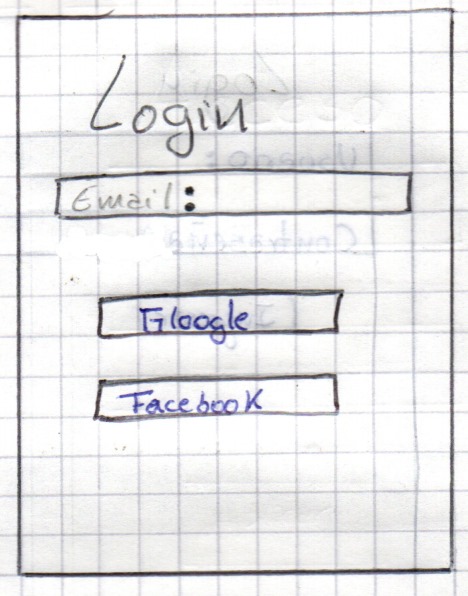 Login
Email:
Google
Facebook